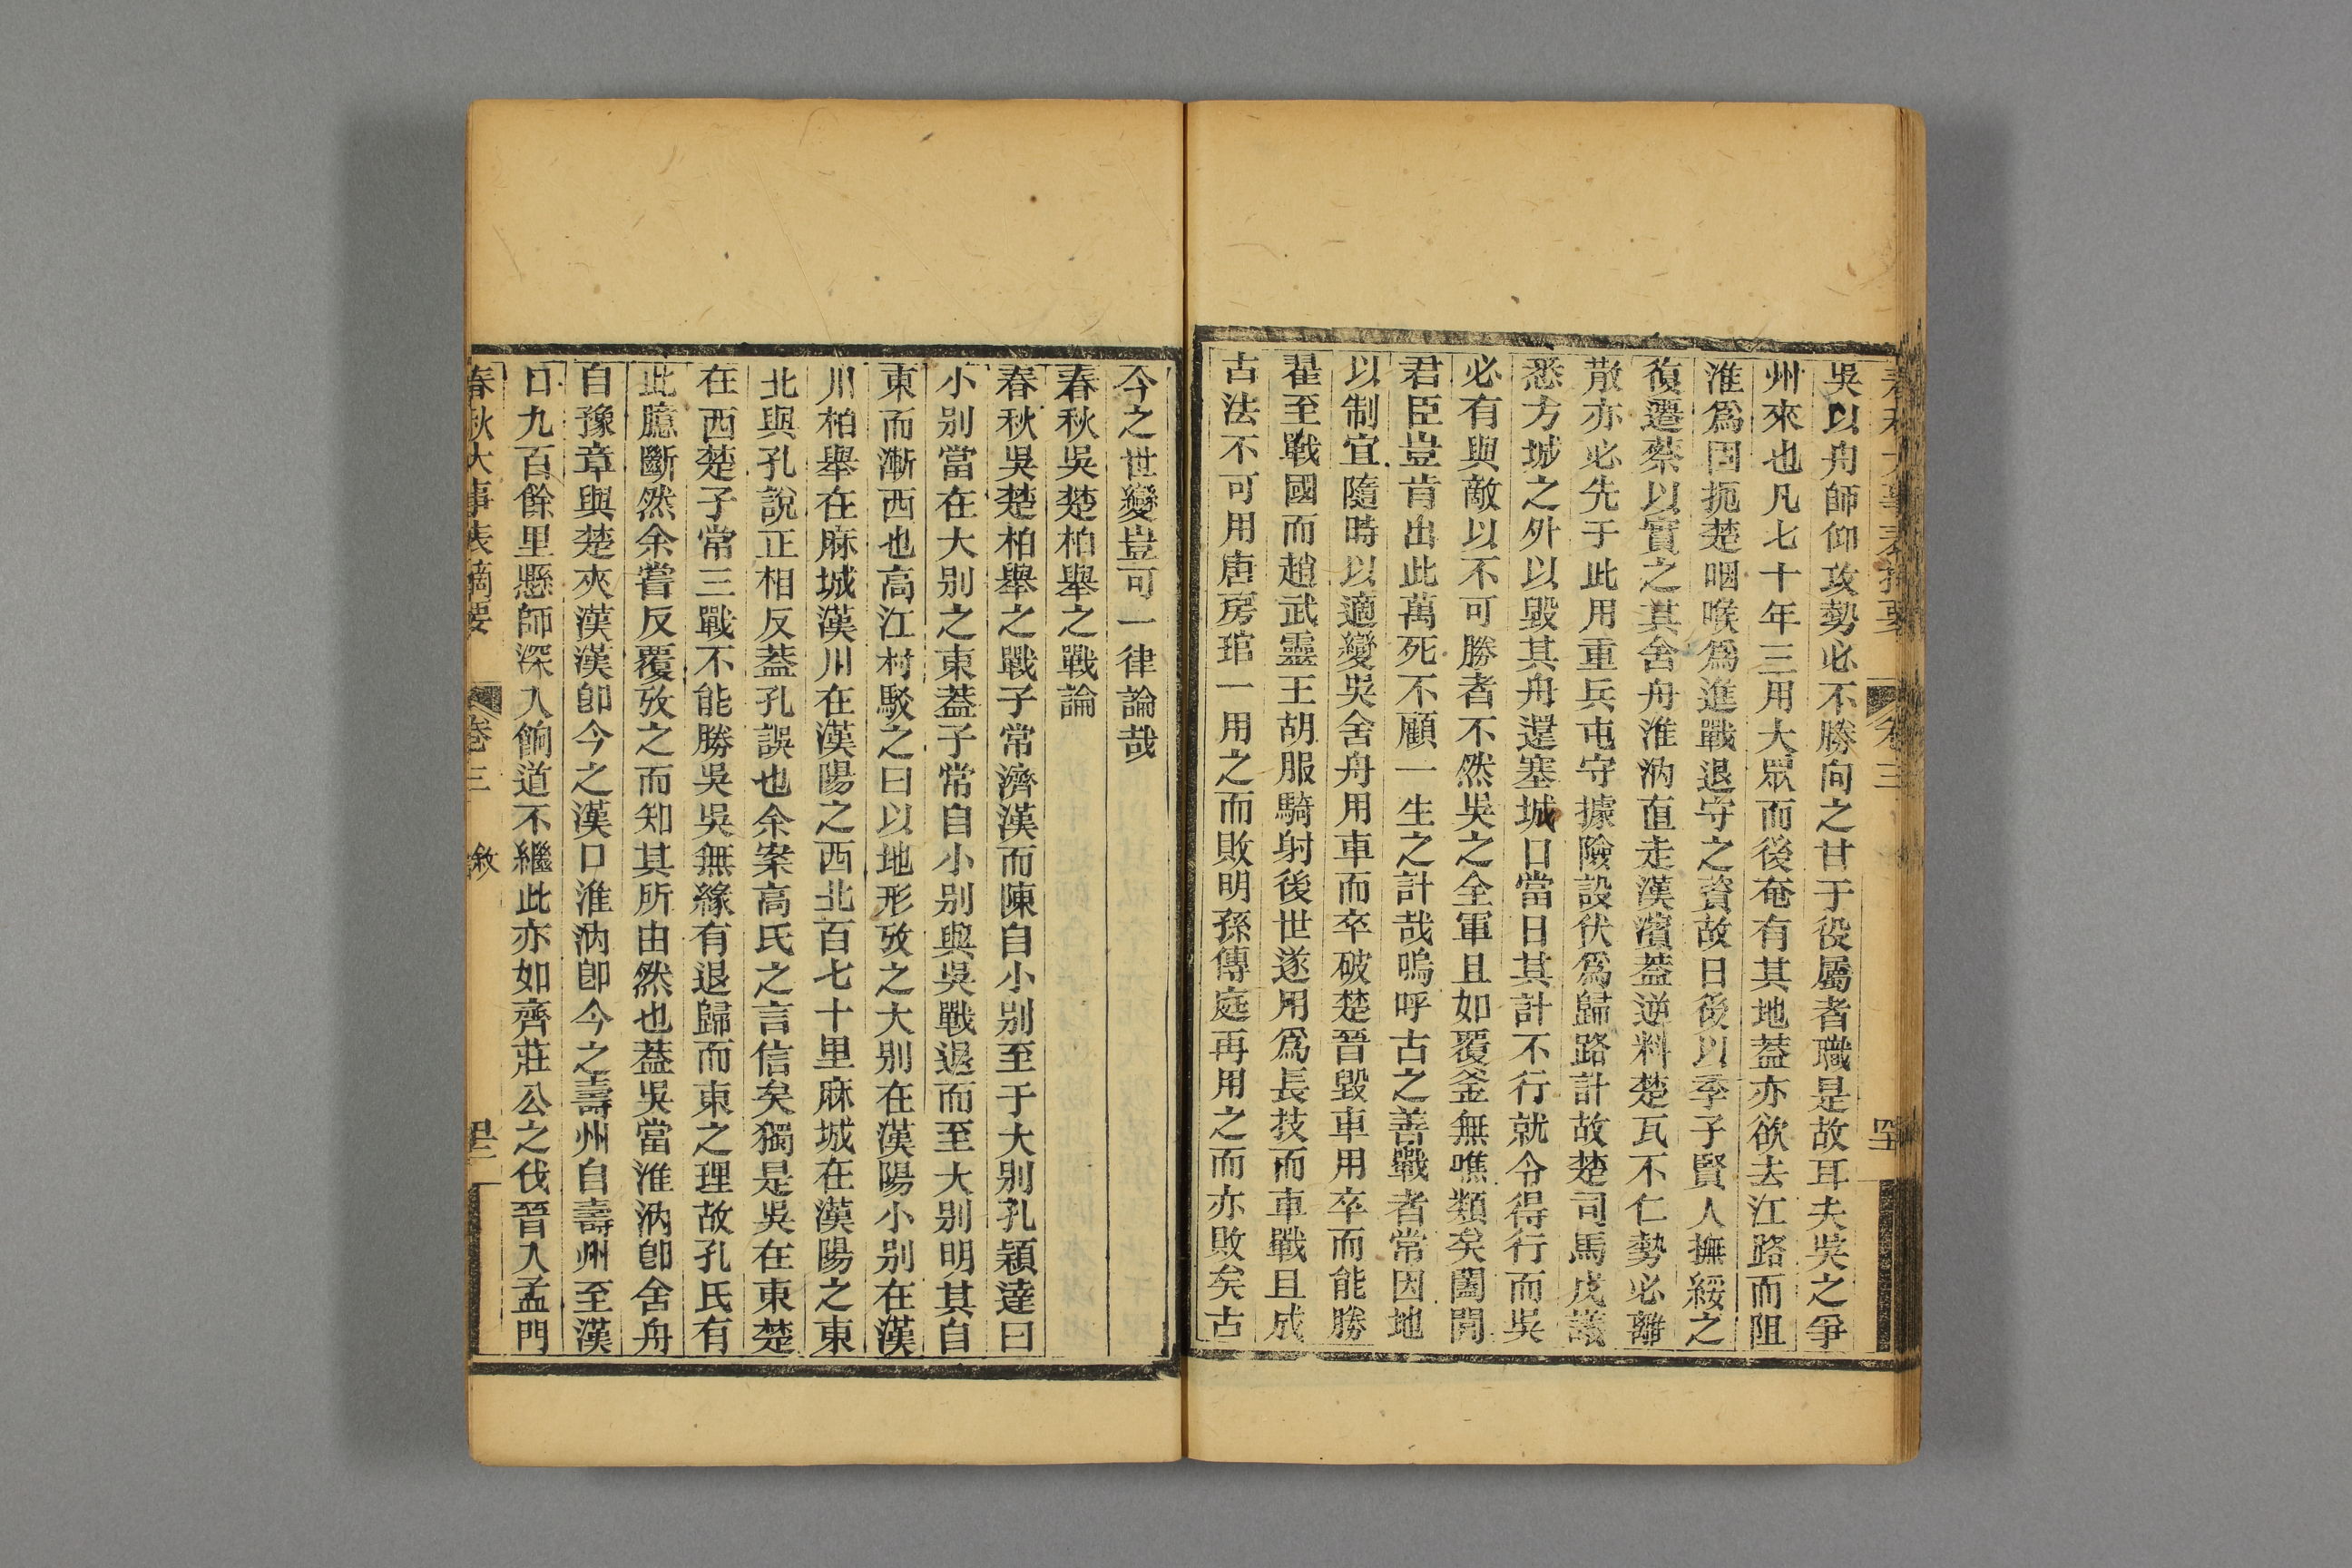 吳以舟師仰攻勢必不勝向之甘于役屬者職是故耳夫吳之爭
州來也凡七十年三用大眾而後奄有其地葢亦欲去江路而阻
淮爲固扼楚咽喉爲進戰退守之資故日後以季子賢人撫綏之
復遷蔡以實之其舍舟淮汭直走漢濱葢逆料楚瓦不仁勢必離
散亦必先于此用重兵屯守據險設伏爲歸路計故楚司馬戌議
悉方城之外以毀其舟還塞城口當日其計不行就令得行而吳
必有與敵以不可勝者不然吳之全軍且如覆釜無噍類矣闔閭
君臣豈肯出此萬死不顧一生之計哉嗚呼古之善戰者常因地
以制宜隨時以適變吳舍舟用車而卒破楚晉毀車用卒而能勝
翟至戰國而趙武靈王胡服騎射後世遂用爲長技而車戰且成
古法不可用唐房琯一用之而敗明孫傳庭再用之而亦敗矣古
今之世變豈可一律論哉
春秋吳楚柏舉之戰論
春秋吳楚柏舉之戰子常濟漢而陳自小别至于大别孔穎達曰
小别當在大别之東葢子常自小别與吳戰退而至大别明其自
東而漸西也高江村駁之曰以地形攷之大别在漢陽小别在漢
川柏舉在麻城漢川在漢陽之西北百七十里麻城在漢陽之東
北與孔說正相反葢孔誤也余案高氏之言信矣獨是吳在東楚
在西楚子常三戰不能勝吳吳無緣有退歸而東之理故孔氏有
此臆斷然余嘗反覆攷之而知其所由然也葢吳當淮汭卽舍舟
自豫章與楚夾漢漢卽今之漢口淮汭卽今之壽州自壽州至漢
口九百餘里懸師深入餉道不繼此亦如齊莊公之伐晉入孟門
春秋大事表摘要 卷三 敘